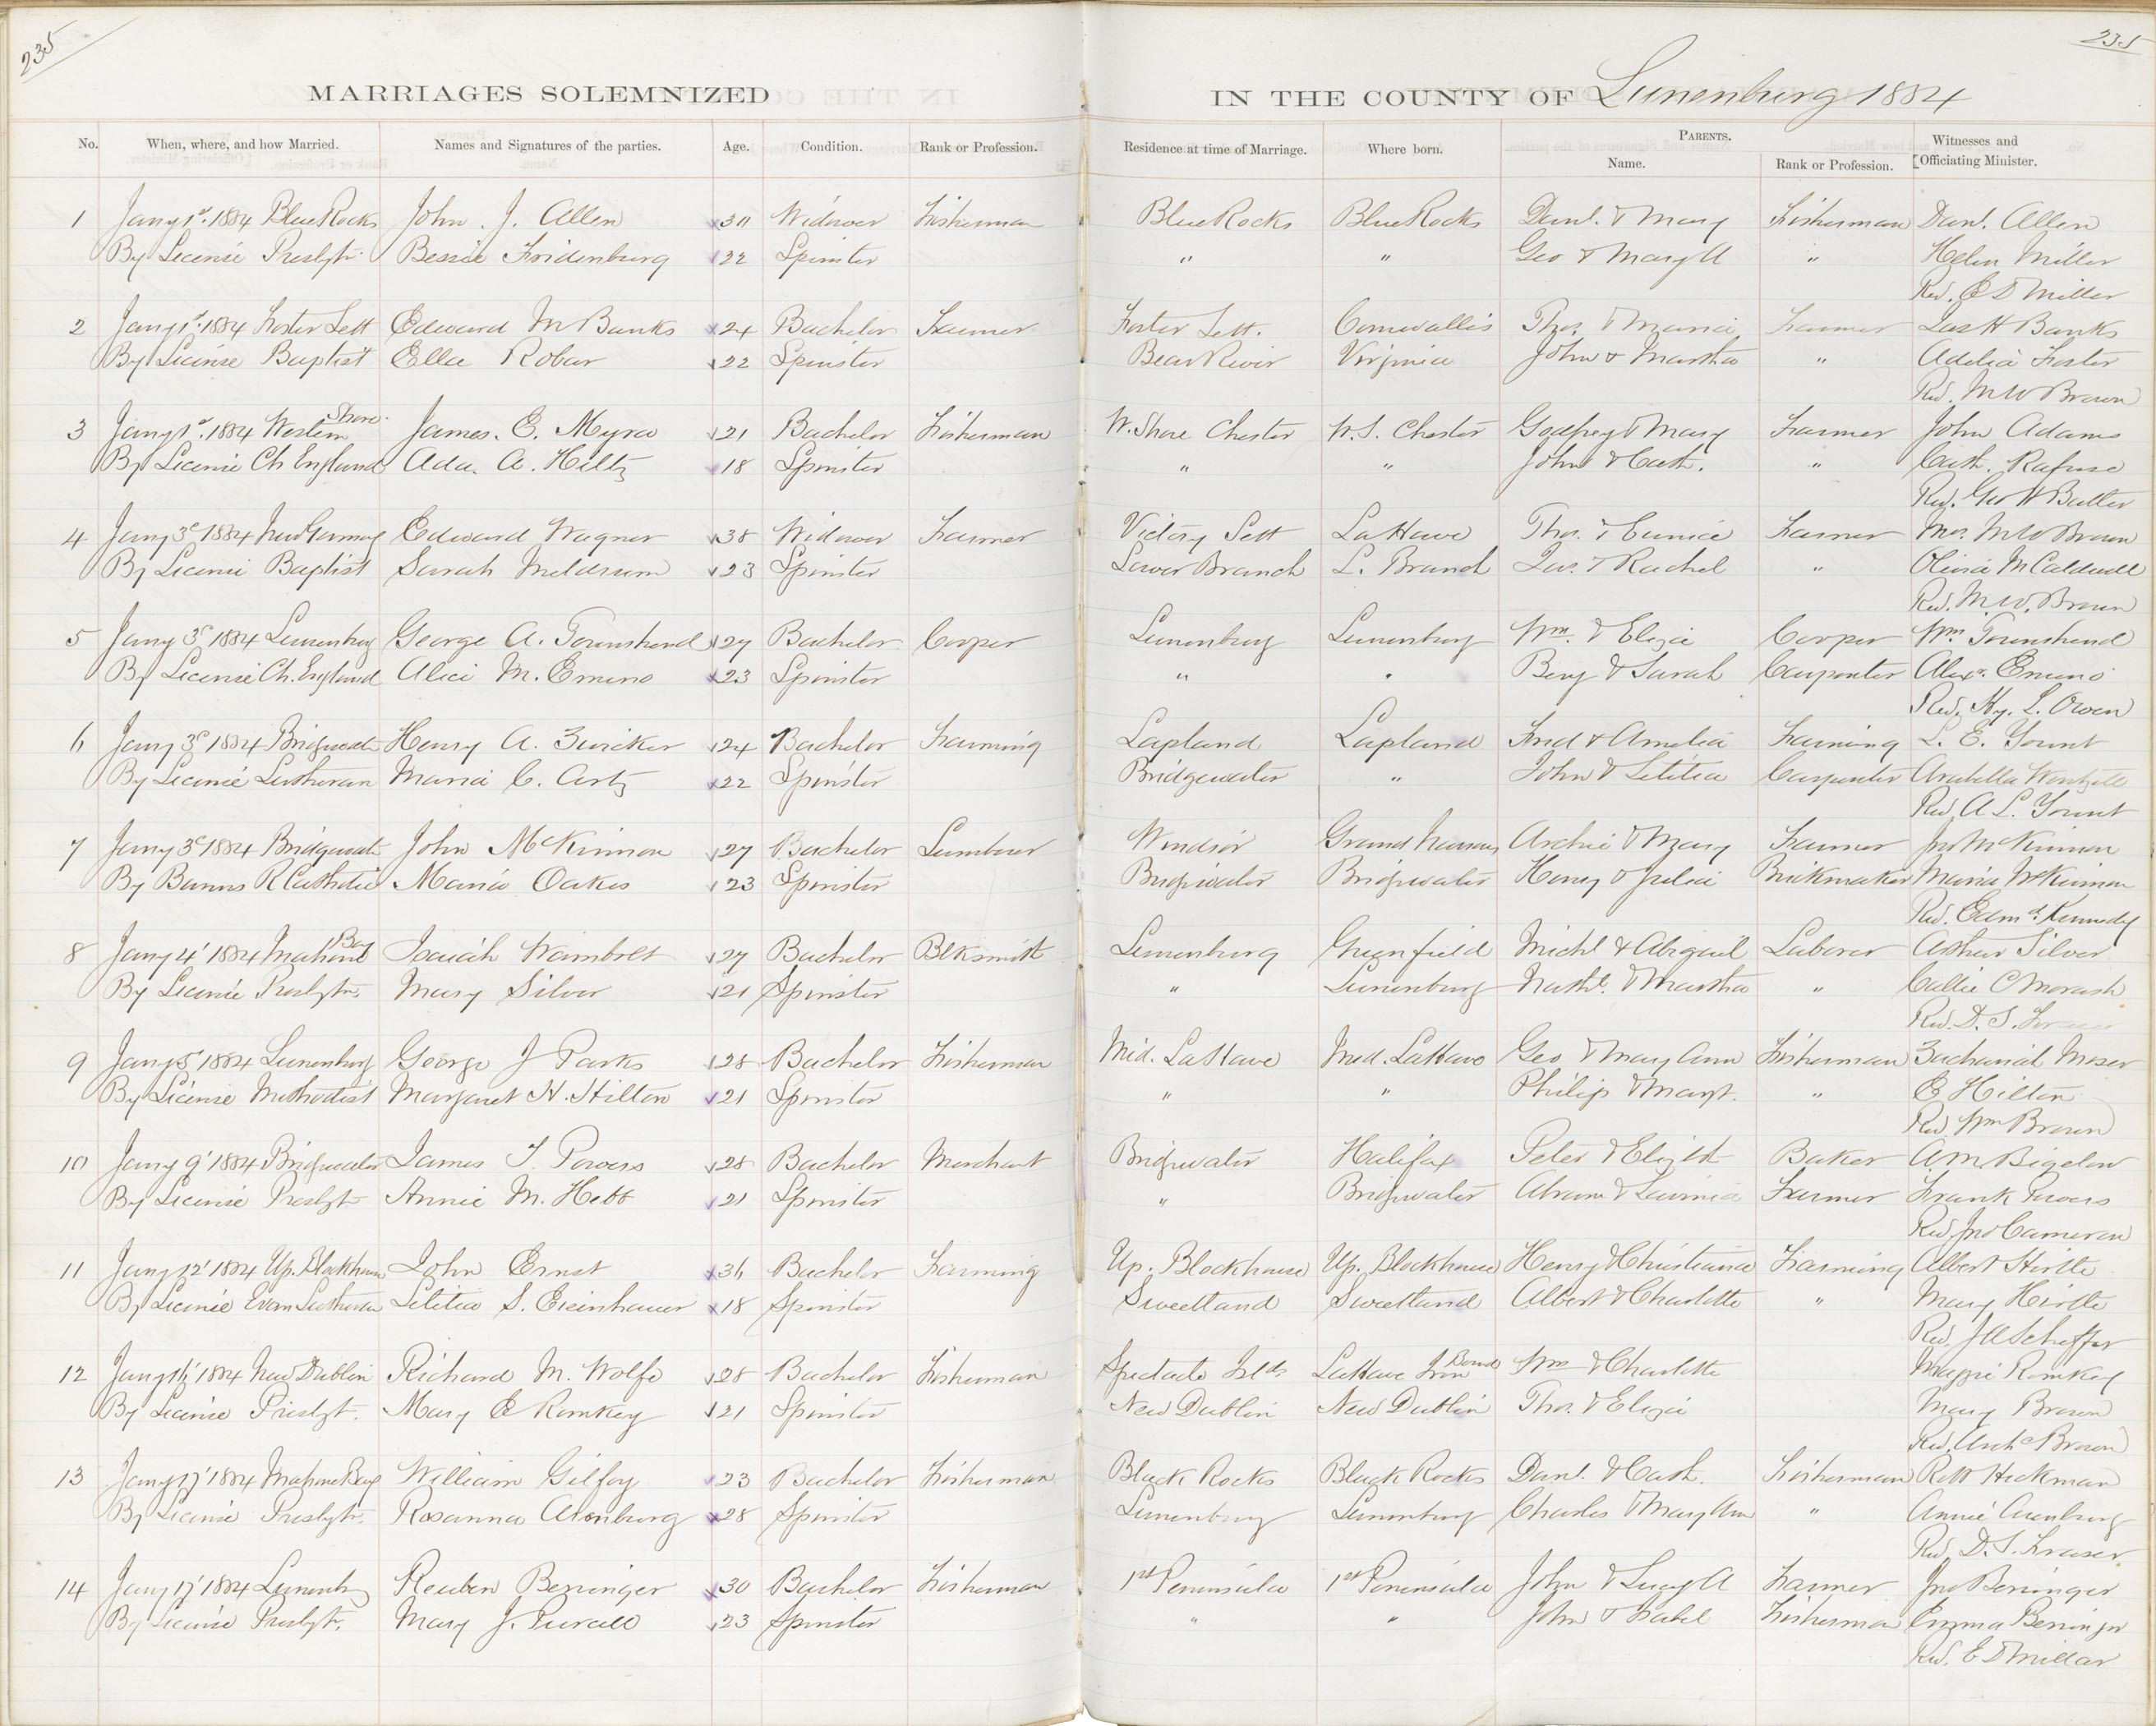 235
235
MARRIAGES SOLEMNIZED IN THE COUNTY OF Lunenburg 1884
No. When, where, and how Married. Names and Signatures of the parties. Age. Condition. Rank or Profession. Residence at time of Marriage. Where born. PARENTS. Name. Rank or Profession. Witnesses and Officiating Minister.
1 Jany 1st. 1884 Blue Rocks John. J. Allen 30 Widower Fisherman Blue Rocks Blue Rocks Danl. & Mary Fisherman Danl. Allen
By License Presbytr. Bessie Fridenburg 22 Spinster " " Geo & Mary " Helen Miller
Rev. E D Miller
2 Jany 1st. 1884 Foster Sett Edward M Banks 24 Bachelor Farmer Foster Sett. Cornwallis Thos. & Maria Farmer Jas H Banks
By License Baptist Ella Robar 22 Spinster Bear River Virginia John & Martha " Adelia Foster
Rev. M W Brown
3 Jany 1st. 1884 Western Shore James. E. Myra 21 Bachelor Fisherman W. Shore Chester W. S. Chester Godfrey & Mary Farmer John Adams
By License Ch England Ada. A. Hiltz 18 Spinster " " John & Cath. " Cath. Rafuse
Rev. Geo H Butler
4 Jany 3d 1884 New Germany Edward Wagner 38 Widower Farmer Victory Sett LaHave Thos. & Eunice Farmer Mrs. M W Brown
By License Baptist Sarah Meldrum 23 Spinster Lower Branch L. Branch Jas. & Rachel " Olivia M Caldwell
Rev. M. W. Brown
5 Jany 3d 1884 Lunenburg George A. Townshend 27 Bachelor Cooper Lunenburg Lunenburg Wm. & Eliza Cooper Wm Townshend
By License Ch. England Alice M. Emino 23 Spinster " " Benj & Sarah Carpenter Alexr. Emino
Rev. Hy. L. Owen
6 Jany 3d 1884 Bridgewater Henry A. Zwicker 24 Bachelor Farming Lapland Lapland Fred & Amelia Farming L. E. Yount
By License Lutheran Maria C. Artz 22 Spinster Bridgewater " John & Letitia Carpenter Arabella Wentzell
Rev A L. Yount
7 Jany 3d 1884 Bridgewater John McKinnon 27 Bachelor Lumberer Windsor Grand Narrows Archie & Mary Farmer Jno McKinnon
By Banns R Catholic Maria Oakes 23 Spinster Bridgewater Bridgewater Henry & Julia Brickmaker Maria McKinnon
Rev. Edmd. Kennedy
8 Jany 4' 1884 Mahone Bay Isaiah Wambolt 27 Bachelor Blksmith Lunenburg Greenfield Michl & Abigail Laborer Arthur Silver
By License Presbytr. Mary Silver 21 Spinster " Lunenburg Nathl. & Martha " Callie C Morash
Rev. D. S. Fraser
9 Jany 5' 1884 Lunenburg George J Parks 28 Bachelor Fisherman Mid. LaHave Mid. LaHave Geo & Mary Ann Fisherman Zachariah Moser
By License Methodist Margaret H. Hilton 21 Spinster " " Philip & Margt. " E Hilton
Rev. Wm Brown
10 Jany 9' 1884 Bridgewater James T. Powers 28 Bachelor Merchant Bridgewater Halifax Peter & Elizth Baker A M. Bigelow
By License Presbyt Annie M. Hebb 21 Spinster " Bridgewater Abram & Lavinia Farmer Frank Powers
Rev Jno Cameron
11 Jany 12' 1884 Up. Blockhouse John Ernst 36 Bachelor Farming Up. Blockhouse Up. Blockhouse Henry & Christianna Farming Albert Hirtle
By License Evan Lutheran Letitia S. Eisenhauer 18 Spinster Sweetland Sweetland Albert & Charlotte " Mary Hirtle
Rev. J A Scheffer
12 Jany 16' 1884 New Dublin Richard M. Wolfe 28 Bachelor Fisherman Spectacle Islds LaHave Iron Bound Wm & Charlotte Maggie Romkey
By License Presbyt. Mary E Romkey 21 Spinster New Dublin New Dublin Thos. & Eliza Mary Brown
Rev. Archd Brown
13 Jany 17' 1884 Mahone Bay William Gilfoy 23 Bachelor Fisherman Black Rocks Black Rocks Danl. & Cath. Fisherman Robt Heckman
By License Presbytr. Rosanna Arenburg 28 Spinster Lunenburg Lunenburg Charles & Mary Ann " Annie Arenburg
Rev. D. S. Fraser
14 Jany 17' 1884 Lunenburg Reuben Berringer 30 Bachelor Fisherman 1st Peninsula 1st Peninsula John & Lucy A Farmer Jno Berringer
By License Presbyt. Mary J. Purcell 23 Spinster " " John & Isabel Fisherman Emma Berringer
Rev. E D Millar